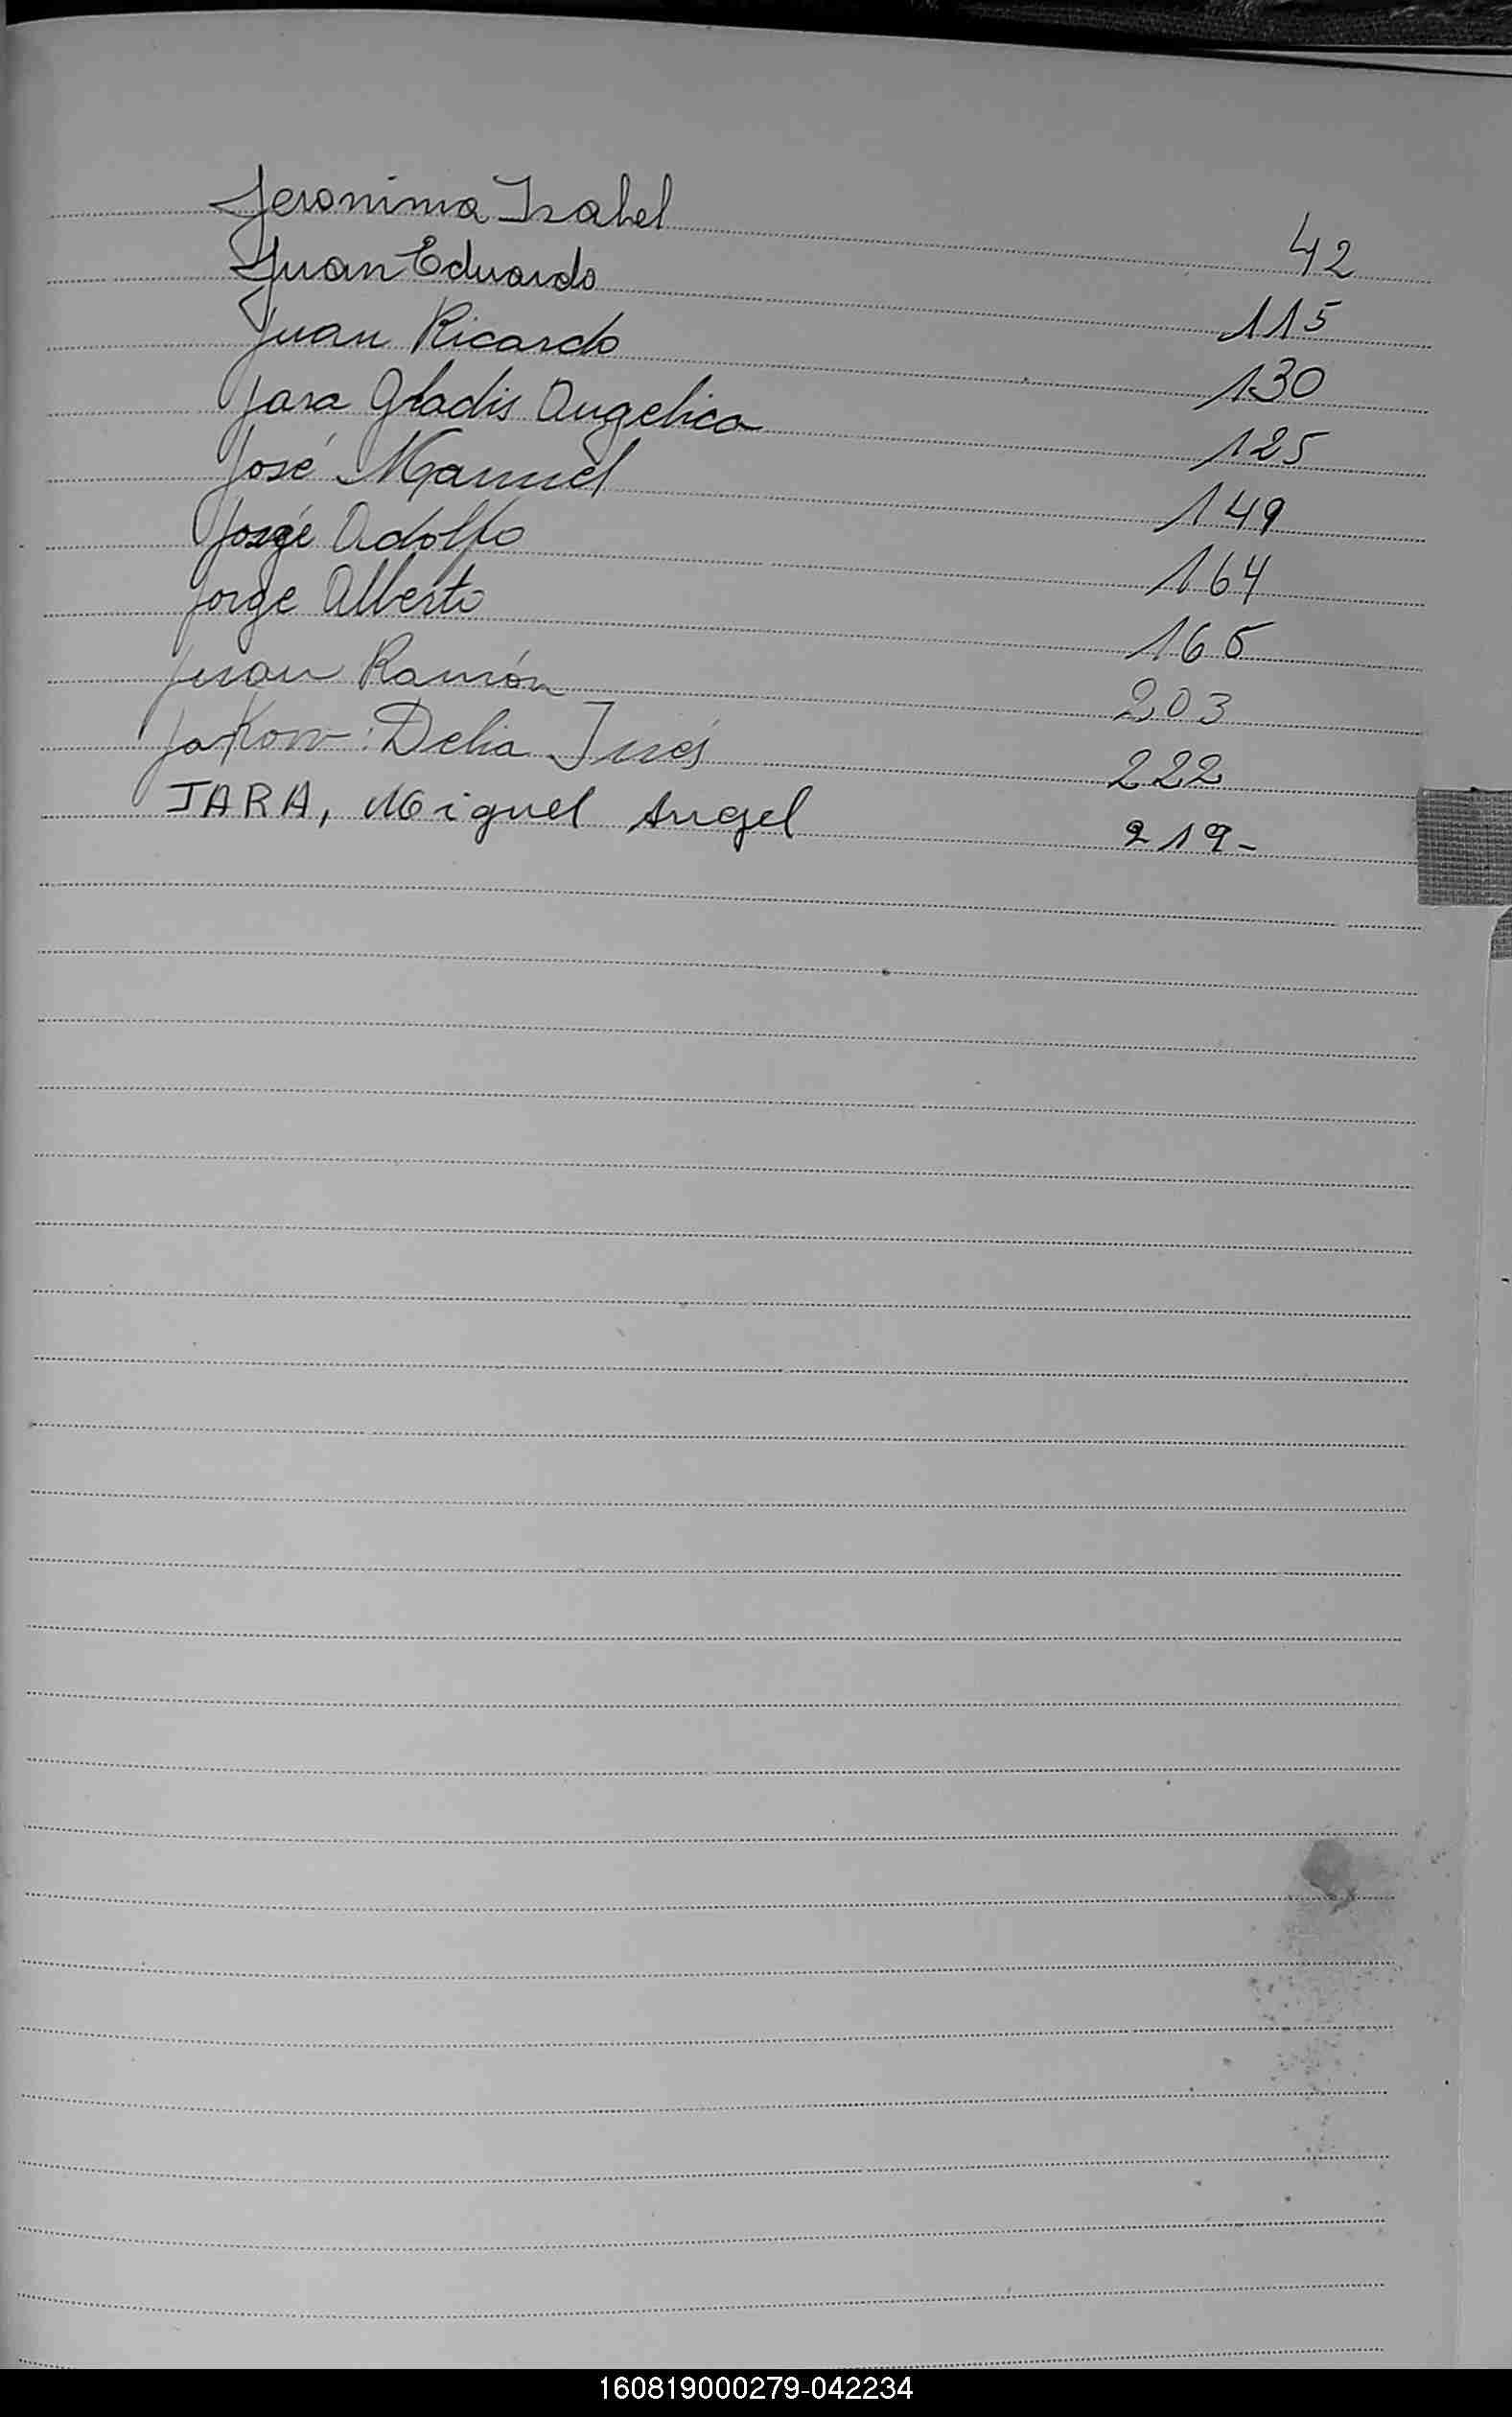 Jeronima Isabel 42
Juan Eduardo 115
Juan Ricardo 130
Jara Gladis Angelica 125
José Manuel 149
Jorge Adolfo 164
Jorge Alberto 165
Juan Ramón 203
Jakow: Delia Inés 222
JARA, Miguel Angel 219-
160819000279-042234